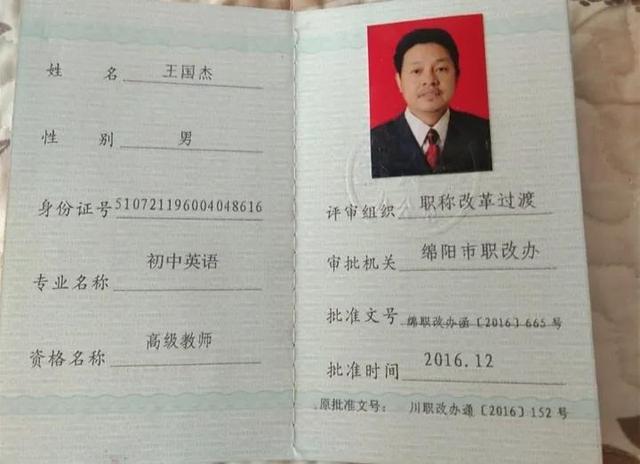 姓 名 王国杰
性 别 男
身份证号 510721196004048616
专业名称 初中英语
资格名称 高级教师
评审组织 职称改革过渡
审批机关 绵阳市职改办
批准文号 绵职改办函〔2016〕665号
批准时间 2016.12
原批准文号: 川职改办通〔2016〕152号